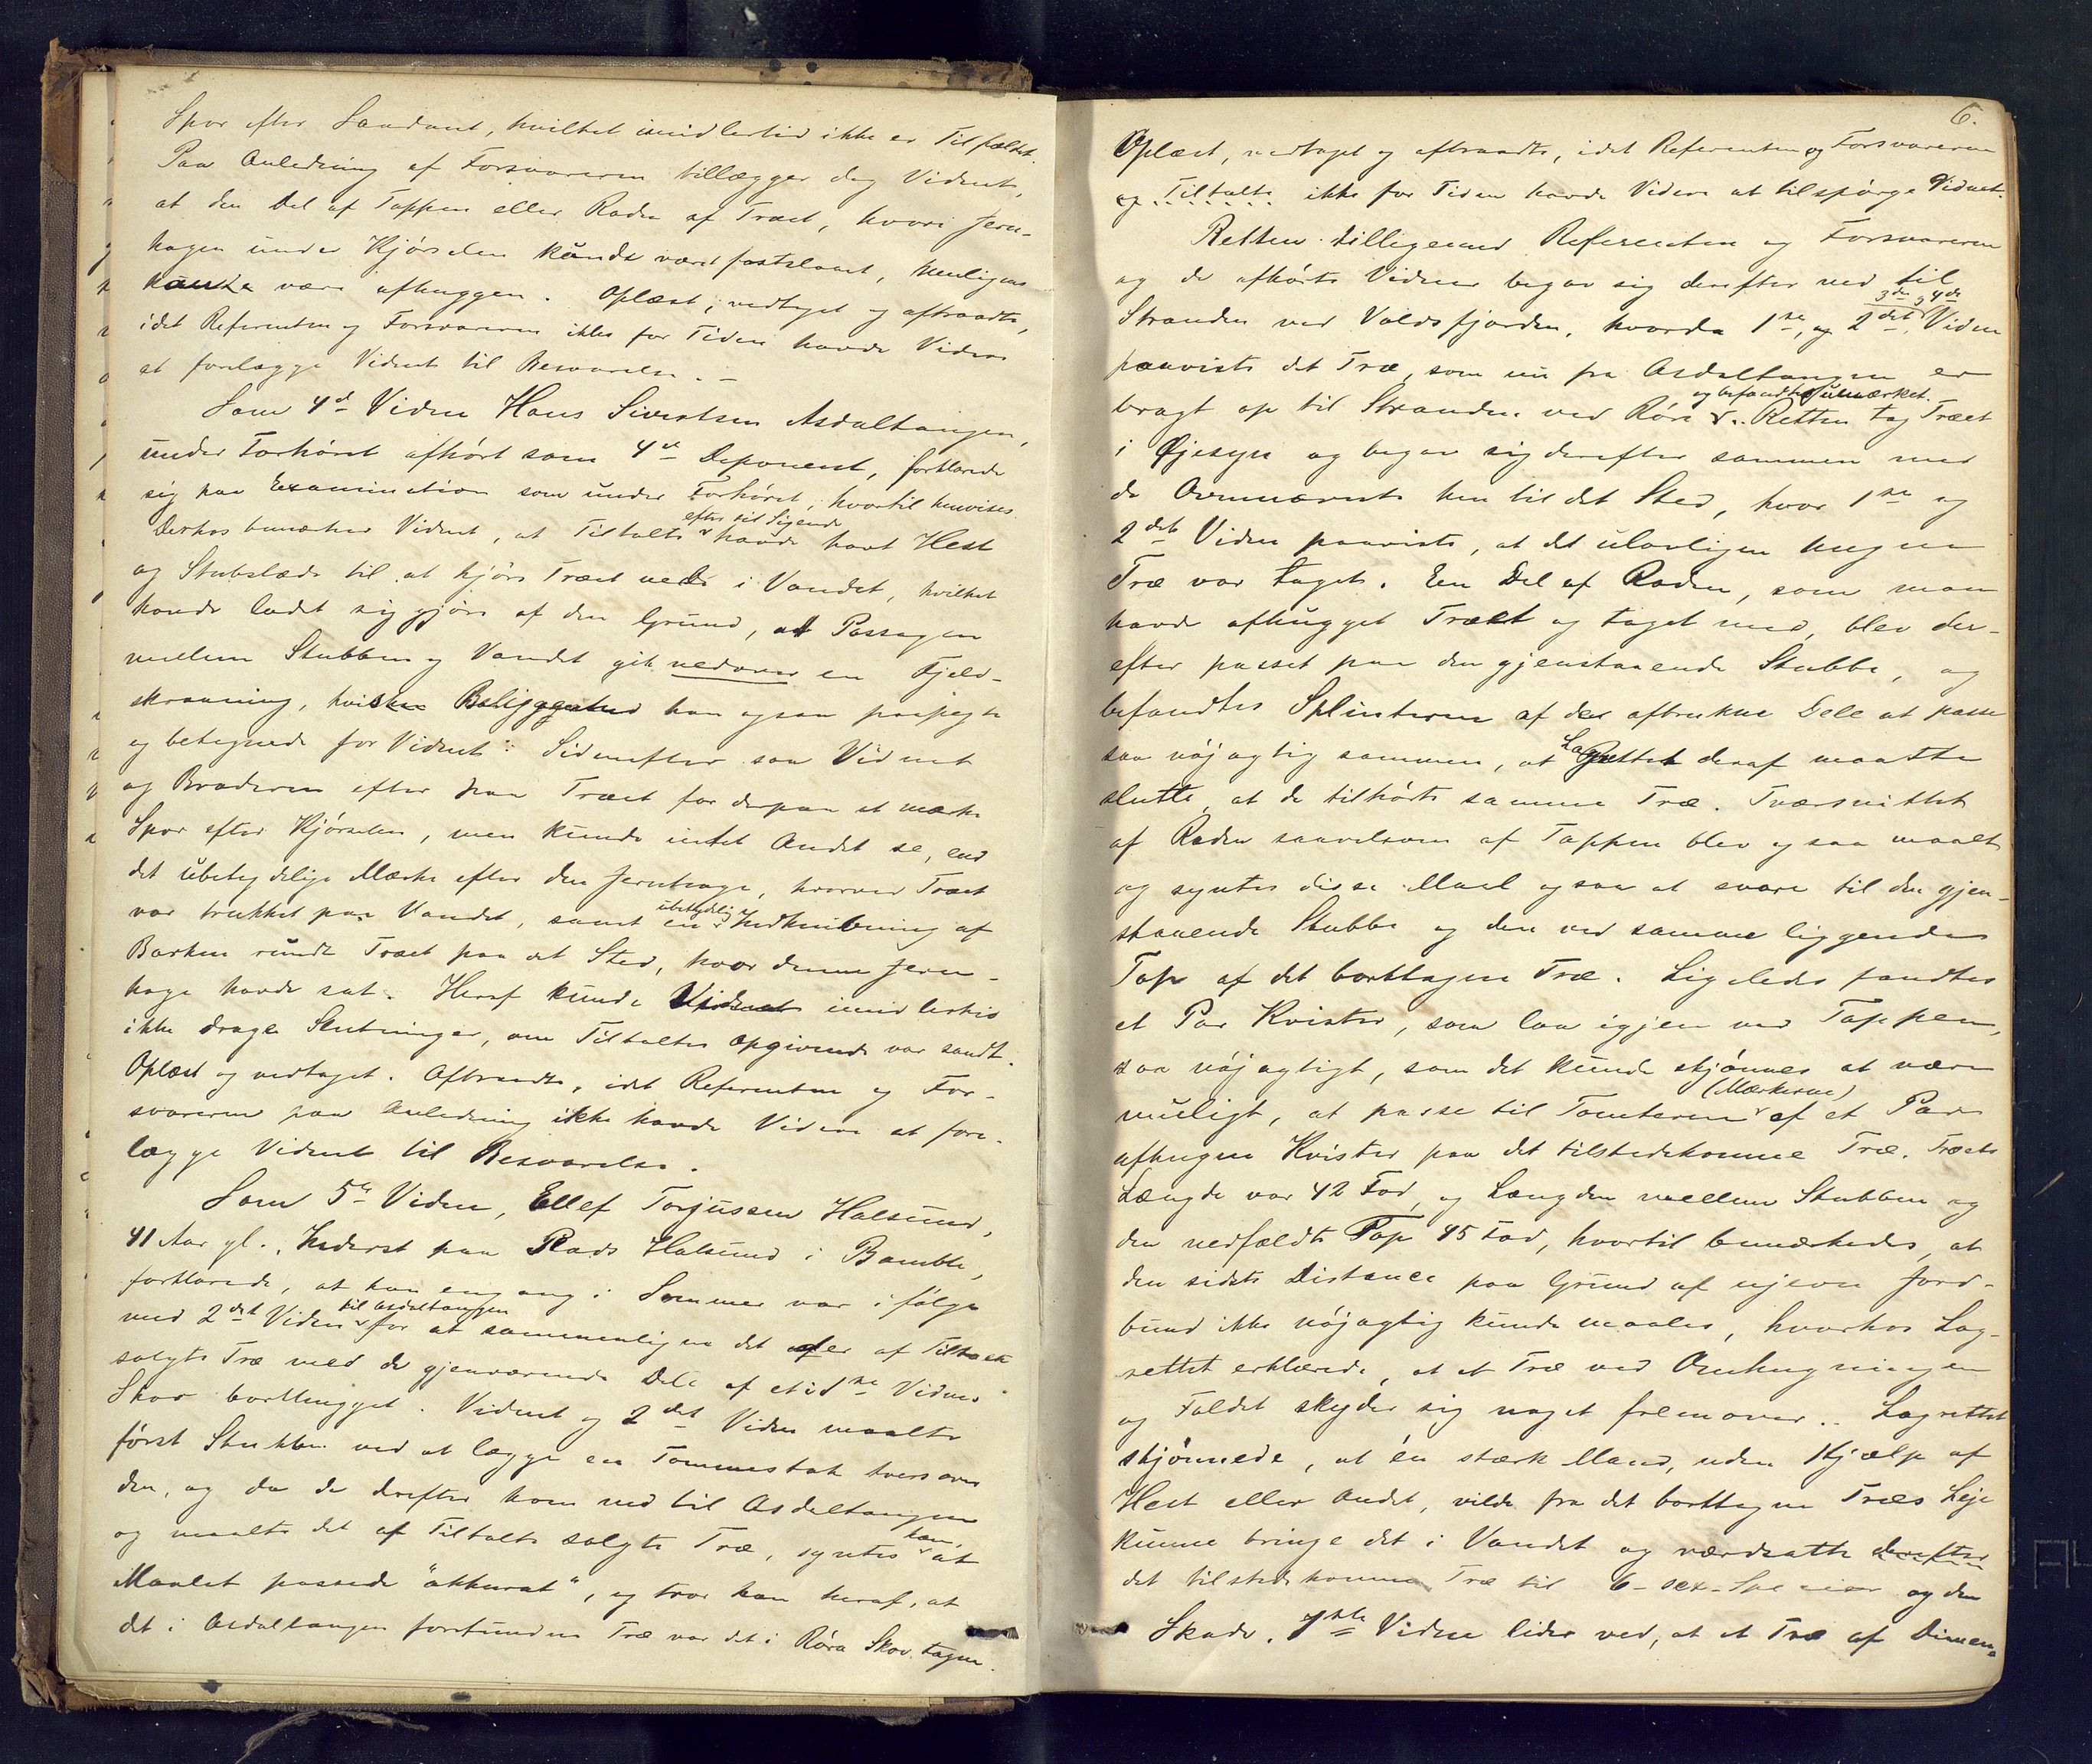 Spor efter Saadant, hvilket imidlertid ikke er Tilfældet.
Paa Anledning af Forsvareren tillægger dog Vidnet,
at den Del af Toppen eller Roden af Træet, hvori Jern-
hagen under Kjørselen kunde været fastslaaet, muligens
kunde være afhuggen. Oplæst, vedtaget og aftraadte,
idet Referenten og Forsvareren ikke for Tiden havde Videre
at forelægge Vidnet til Besvarelse. –
Som 4de Vidne Hans Sivertsen Asdaltangen,
under Forhøret afhørt som 4de Deponent, forklarede
sig paa Examination som under Forhøret, hvortil henvises.
Derhos bemærker Vidnet, at Tiltalte efter sit Sigende havde havt Hest
og Stubslæde til at kjøre Træet ned i Vandet, hvilket
havde ladet sig gjøre af den Grund, at Passagen
mellem Stubben og Vandet gik nedover en Fjeld-
skraaning, hvis Beliggenhed han ogsaa paapegte
og betegnede for Vidnet. Sidenefter saa Vidnet
og Broderen efter paa Træet for derpaa at mærke
Spor efter Kjørselen, men kunde intet Andet se, end
det ubetydelige Mærke efter den Jernhage, hvorved Træet
var trukket paa Vandet, samt en ubetydelig Indknibning af
Barken rundt Træet paa det Sted, hvor denne Jern-
hage havde sat. Heraf kunde Vidnet imidlertid
ikke drage Slutninger, om Tiltaltes Opgivende var sandt.
Oplæst og vedtaget. Aftraadte, idet Referenten og For-
svareren paa Anledning ikke havde Videre at fore-
lægge Vidnet til Besvarelse.
Som 5te Vidne, Ellef Torjussen Halsund,
41 Aar gl., Inderst paa Rads Halsund i Bamble,
forklarede, at han engang i Sommer var i følge
med 2det Vidne til Asdaltangen for at sammenligne det af Tiltalte
solgte Træ med de gjenværende Dele af et i 1ste Vidnes
Skov borthugget. Vidnet og 2det Vidne maalte
først Stubben ved at lægge en Tommestok tvers over
den, og da de derefter kom ned til Asdaltangen
og maalte det af Tiltalte solgte Træ, syntes han, at
Maalet passede "akkurat", og tror han heraf, at
det i Asdaltangen forefundne Træ var det i Røra Skov tagne.
6.
Oplæst, vedtaget og aftraadte, idet Referenten og Forsvareren
og Tiltalte ikke for Tiden havde Videre at tilspørge Vidnet.
Retten tilligemed Referenten og Forsvareren
og de afhørte Vidner begav sig derefter ned til
Stranden ved Voldsfjorden, hvorda 1ste, og 2det 3die og 4de Vidne
paaviste det Træ, som nu fra Asdaltangen er
bragt op til Stranden ved Røra og befandtes umærket. Retten tog Træet
i Øjesyn og begav sig derefter sammen med
de Ovennævnte hen til det Sted, hvor 1ste og
2det Vidne paaviste, at det ulovligen hugne
Træ var taget. En Del af Roden, som man
havde afhugget Træet og taget med, blev der-
efter passet paa den gjenstaaende Stubbe, og
befandtes Splinterne af de aftrukne Dele at passe
saa nøjagtig sammen, at Lagrettet deraf maatte
slutte, at de tilhørte samme Træ. Tværsnittet
af Roden saavelsom af Toppen blev ogsaa maalt
og syntes disse Maal ogsaa at svare til den gjen-
staaende Stubbe og den ved samme liggende
Top af det borttagne Træ. Ligeledes fandtes
et Par Kvister, som laa igjen ved Toppen,
saa nøjagtigt, som det kunde skjønnes at være
muligt, at passe til Tomterne (Mærkerne) af et Par
afhugne Kvister paa det tilstedekomne Træ. Træets
Længde var 42 Fod, og Længden mellem Stubben og
den nedfældte Top 45 Fod, hvortil bemærkedes, at
den sidste Distance paa Grund af ujevn Jord-
bund ikke nøjagtig kunde maales, hvorhos Lag-
rettet erklærede, at et Træ ved Omhugningen
og Faldet skyder sig noget fremover. Lagrettet
skjønnede, at én stærk Mand, uden Hjælp af
Hest eller Andet, vilde fra det borttagne Træs Leje
kunne bringe det i Vandet og værdsatte derefter
det tilstedekomne Træ til 6 – sex – Specier og den
Skade, 1ste Vidne lider ved, at et Træ af Dimen-